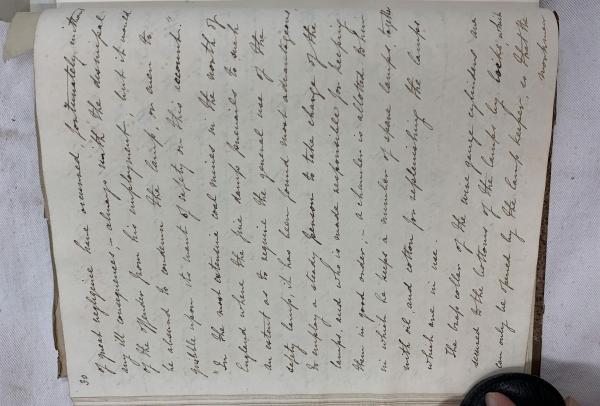 30
of great negligence have occurred, fortunately without
any ill consequences, – always with the dismissal
of the offender from his employment; but it would
be absurd to condemn the lamp, or even to
quibble upon its want of safety on this account."
"In the most extensive coal mines in the north of
England where the fire damp prevails to such
an extent as to require the general use of the
safety lamp, it has been found most advantageous
to employ a steady person to take charge of the
lamps, and who is made responsible for keeping
them in good order; – a chamber is allotted to him
in which he keeps a number of spare lamps together
with oil, and cotton for replenishing the lamps
which are in use.
The top collar of the wire gauze cylinders are
secured to the bottoms of the lamps by locks which
can only be opened by the lamp keeper, so that the
workmen